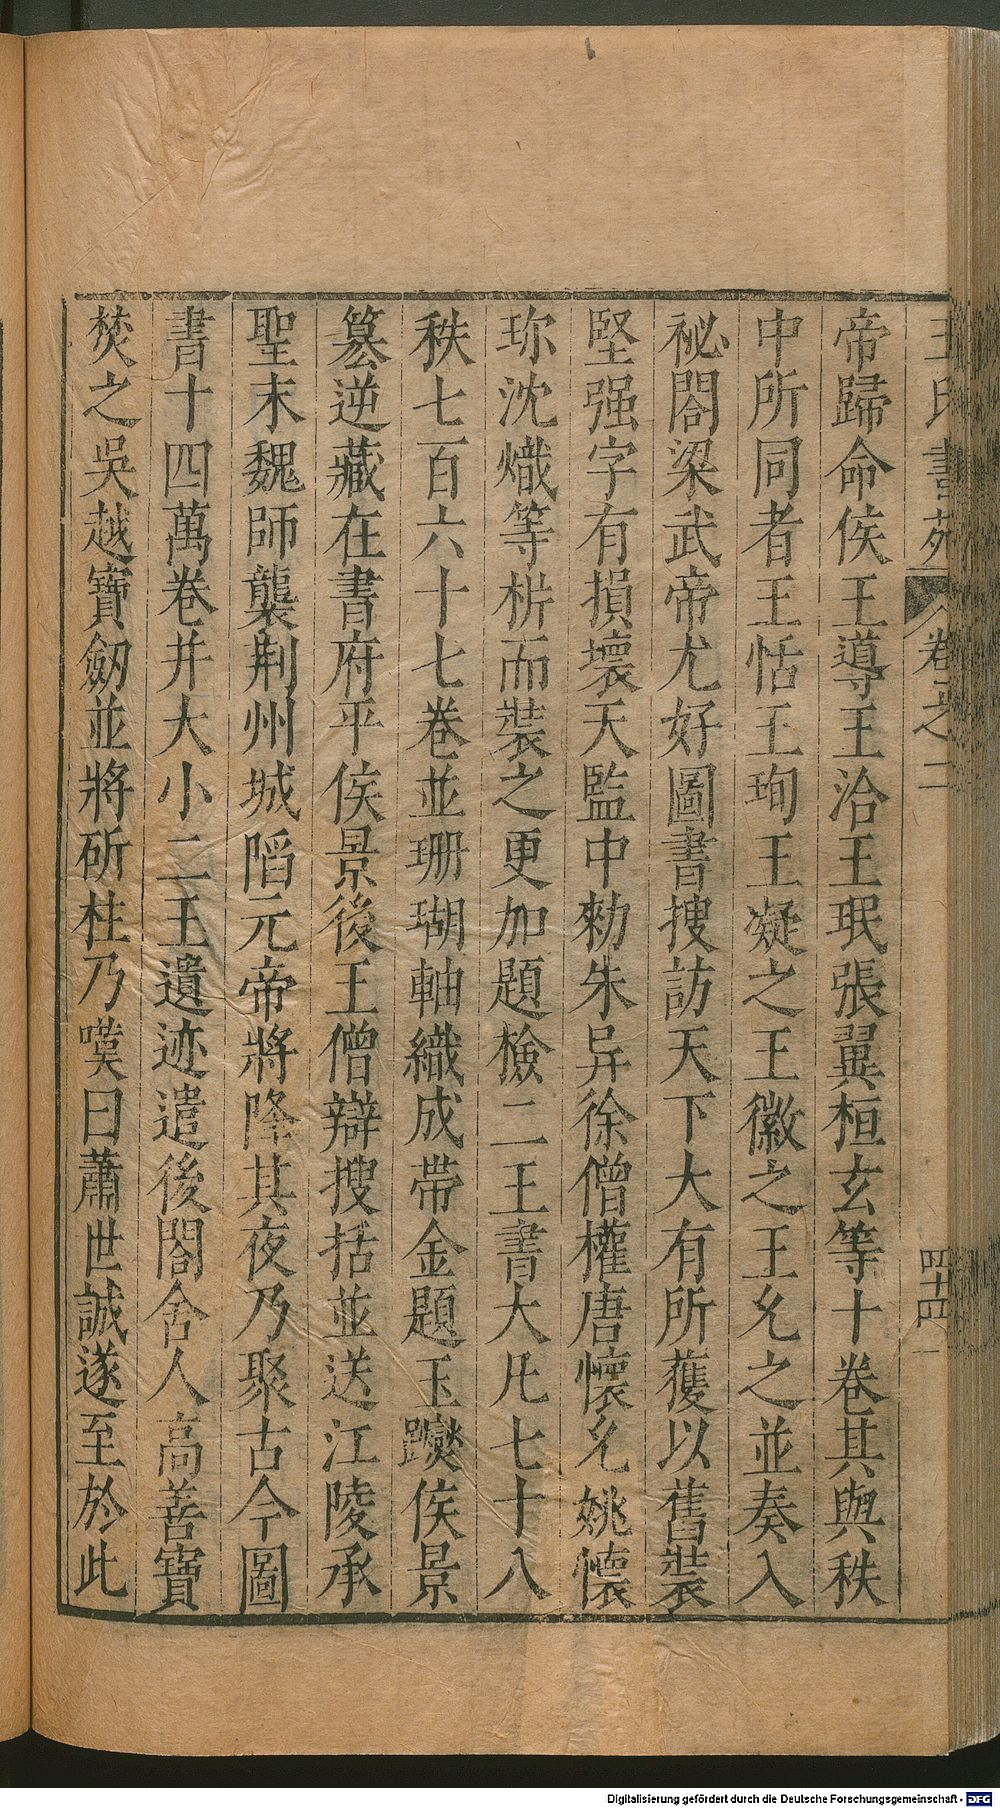 王氏書苑 卷之二 四十四
帝歸命侯王導王洽王珉張翼桓玄等十卷其與秩
中所同者王恬王珣王凝之王徽之王允之並奏入
祕閣梁武帝尤好圖書搜訪天下大有所獲以舊裝
堅强字有損壞天監中勑朱异徐僧權唐懷允姚懷
珎沈熾等析而裝之更加題檢二王書大凡七十八
秩七百六十七卷並珊瑚軸織成带金題玉躞侯景
篡逆藏在書府平侯景後王僧辯搜括並送江陵承
聖末魏師襲荆州城陷元帝將降其夜乃聚古今圖
書十四萬卷并大小二王遺迹遣後閣舍人高善寶
焚之吳越寶劒並將斫柱乃嘆曰蕭世誠遂至於此
Digitalisierung gefördert durch die Deutsche Forschungsgemeinschaft - DFG